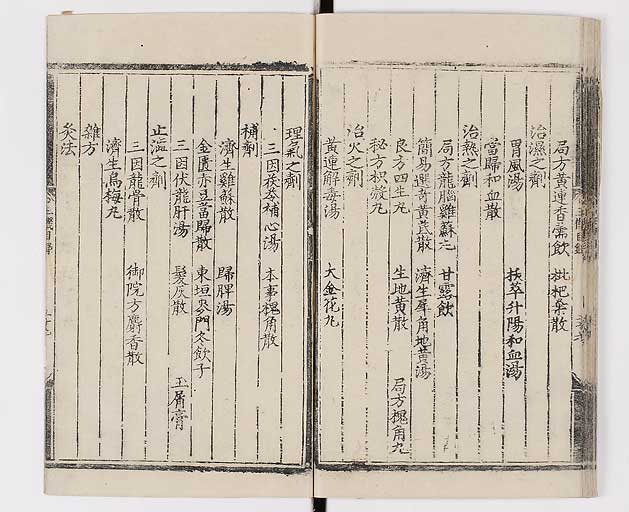 局方黄連香薷飲 枇杷葉散
治濕之劑
胃風湯 拔萃升陽和血湯
當歸和血散
治熱之劑
局方龍腦雞蘇丸 甘露飲
簡易選奇黄芪散 濟生犀角地黄湯
良方四生丸 生地黄散 局方槐角丸
秘方枳殼丸
治火之劑
黄連解毒湯 大金花丸
理氣之劑
三因茯苓補心湯 本事槐角散
補劑
濟生雞蘇散 歸脾湯
金匱赤豆當歸散 東垣麥門冬飲子
三因伏龍肝湯 髮灰散 玉屑膏
止澁之劑
三因龍骨散 御院方麝香散
濟生烏梅丸
雜方
灸法